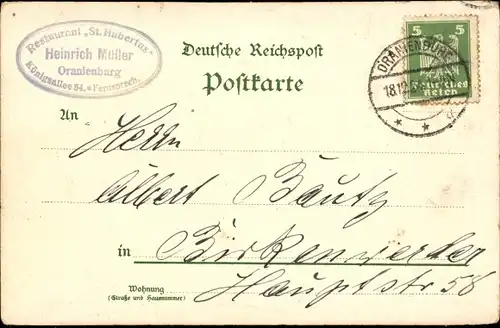 Restaurant „St. Hubertus“
Heinrich Müller
Oranienburg
Königsallee 54. Fernsprech.
Deutsche Reichspost
Postkarte
5 5
Deutsches
Reich
ORANIENBURG
18.12.
An
Herrn
Albert Bautz
in Birkenwerder
Hauptstr 58
Wohnung
(Straße und Hausnummer)